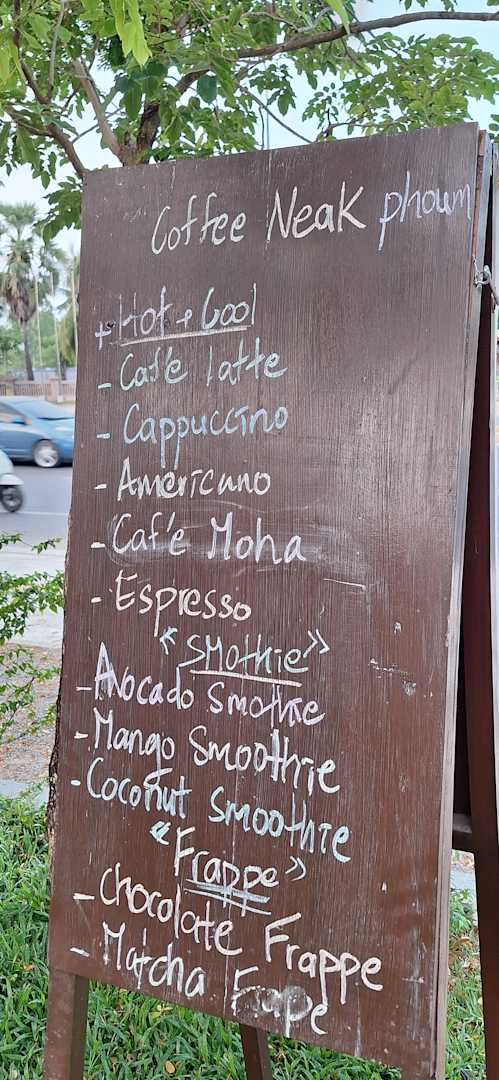 Coffee Neak phoum
+ Hot + Cool
- Café latte
- Cappuccino
- Americano
- Café Moha
- Espresso
"Smothie"
- Avocado smothie
- Mango Smoothie
- Coconut smoothie
"Frappe"
- Chocolate Frappe
- Matcha Frape